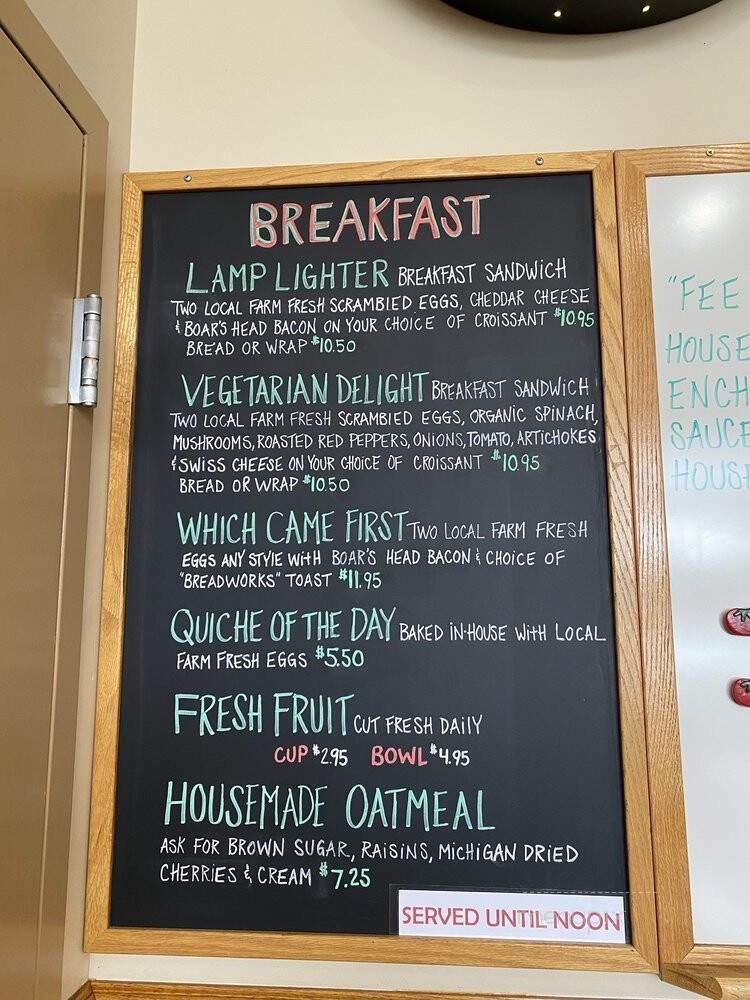 BREAKFAST
LAMP LIGHTER BREAKFAST SANDWICH
TWO LOCAL FARM FRESH SCRAMBLED EGGS, CHEDDAR CHEESE
& BOAR'S HEAD BACON ON YOUR CHOICE OF CROISSANT $10.95
BREAD OR WRAP $10.50
VEGETARIAN DELIGHT BREAKFAST SANDWICH
TWO LOCAL FARM FRESH SCRAMBLED EGGS, ORGANIC SPINACH,
MUSHROOMS, ROASTED RED PEPPERS, ONIONS, TOMATO, ARTICHOKES
& SWISS CHEESE ON YOUR CHOICE OF CROISSANT $10.95
BREAD OR WRAP $10.50
WHICH CAME FIRST TWO LOCAL FARM FRESH
EGGS ANY STYLE WITH BOAR'S HEAD BACON & CHOICE OF
"BREADWORKS" TOAST $11.95
QUICHE OF THE DAY BAKED IN-HOUSE WITH LOCAL
FARM FRESH EGGS $5.50
FRESH FRUIT CUT FRESH DAILY
CUP $2.95 BOWL $4.95
HOUSEMADE OATMEAL
ASK FOR BROWN SUGAR, RAISINS, MICHIGAN DRIED
CHERRIES & CREAM $7.25
SERVED UNTIL NOON
"FEE
HOUSE
ENCH
SAUCE
HOUS